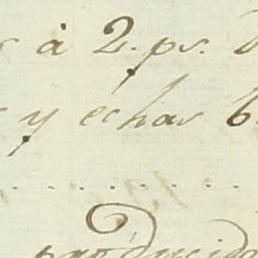 à 2. ps.
y echar 6
producido